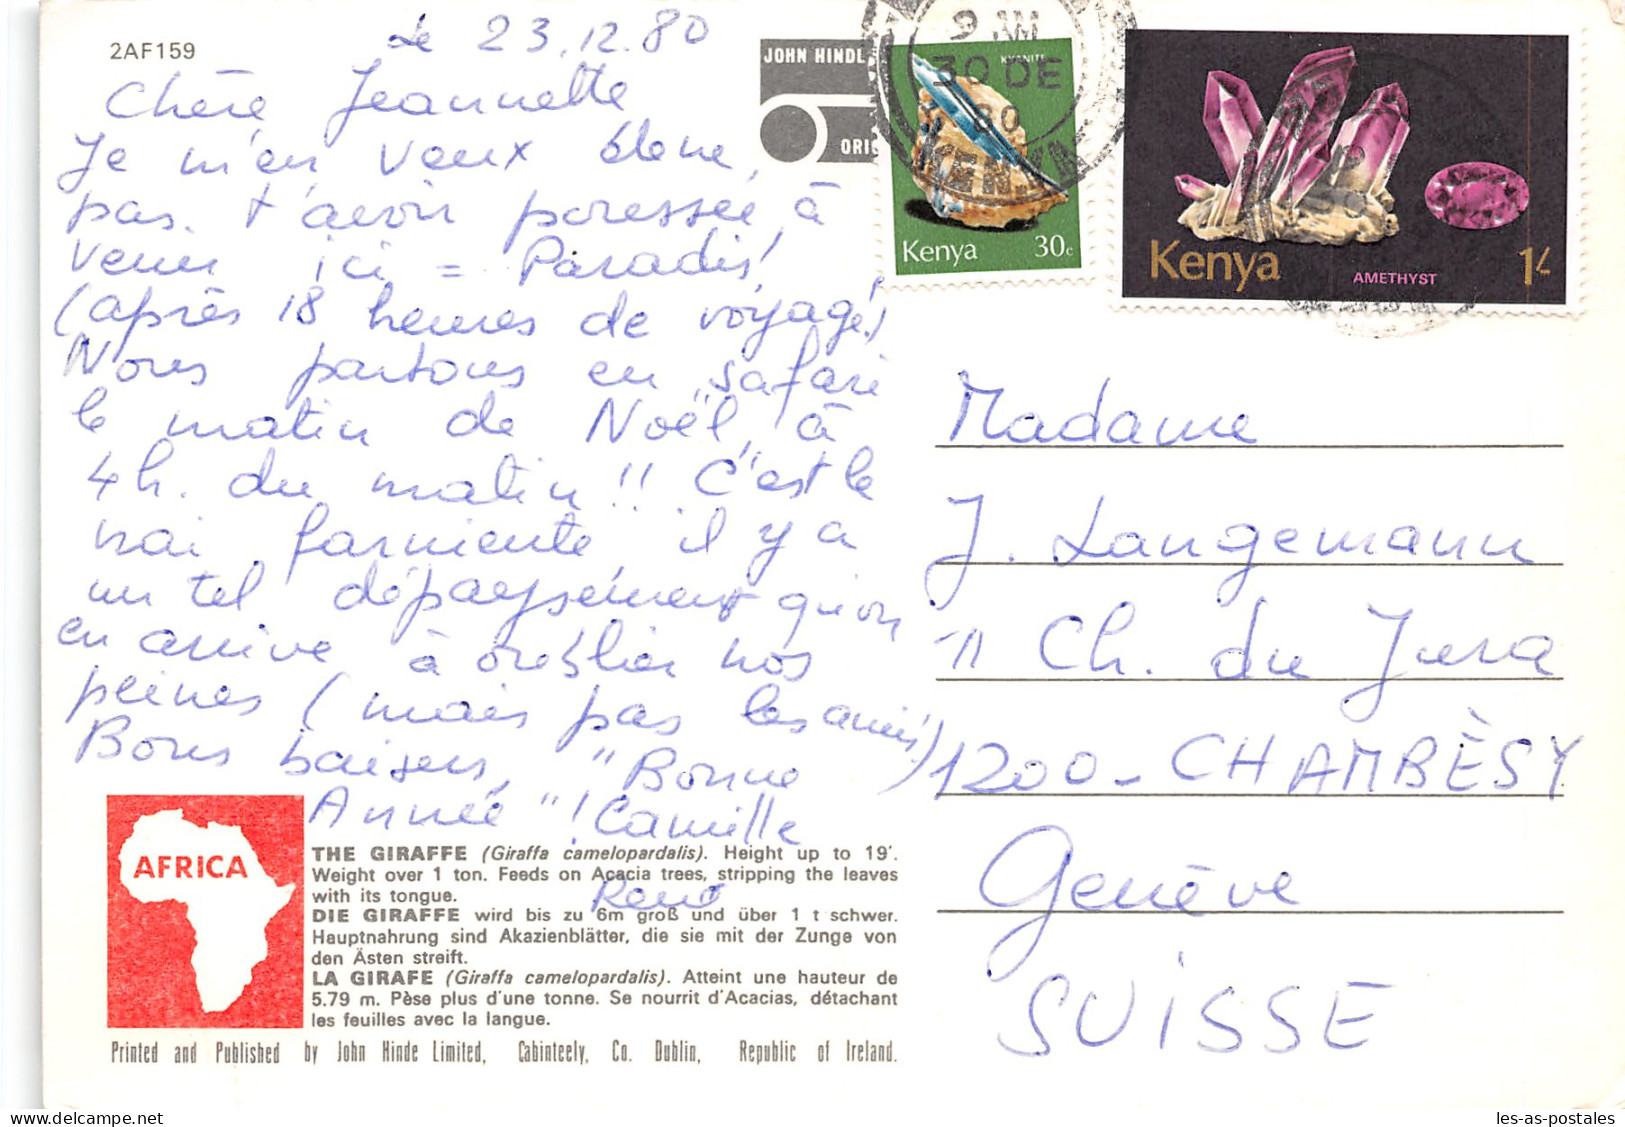 2AF159
Le 23.12.80
Chère Jeannette
Je m'en veux de ne
pas t'avoir poressée à
venir ici = Paradis!
(après 18 heures de voyage!)
Nous partons en "safari"
le matin de Noël, à
4h. du matin!! C'est le
vrai farniente, il y a
un tel dépaysement qu'on
en arrive à oublier nos
peines (mais pas les amis!)
Bons baisers, "Bonne
Année"! Camille
René
JOHN HINDE
ORIG
KYANITE
Kenya 30c
9 AM
30 DE
80
KENYA
Kenya AMETHYST 1/-
Madame
J. Langemann
11 Ch. du Jura
1200 - CHAMBÈSY
Genève
SUISSE
AFRICA
THE GIRAFFE (Giraffa camelopardalis). Height up to 19'.
Weight over 1 ton. Feeds on Acacia trees, stripping the leaves
with its tongue.
DIE GIRAFFE wird bis zu 6m groß und über 1 t schwer.
Hauptnahrung sind Akazienblätter, die sie mit der Zunge von
den Ästen streift.
LA GIRAFE (Giraffa camelopardalis). Atteint une hauteur de
5.79 m. Pèse plus d'une tonne. Se nourrit d'Acacias, détachant
les feuilles avec la langue.
Printed and Published by John Hinde Limited, Cabinteely, Co. Dublin, Republic of Ireland.
delcampe.net
les-as-postales